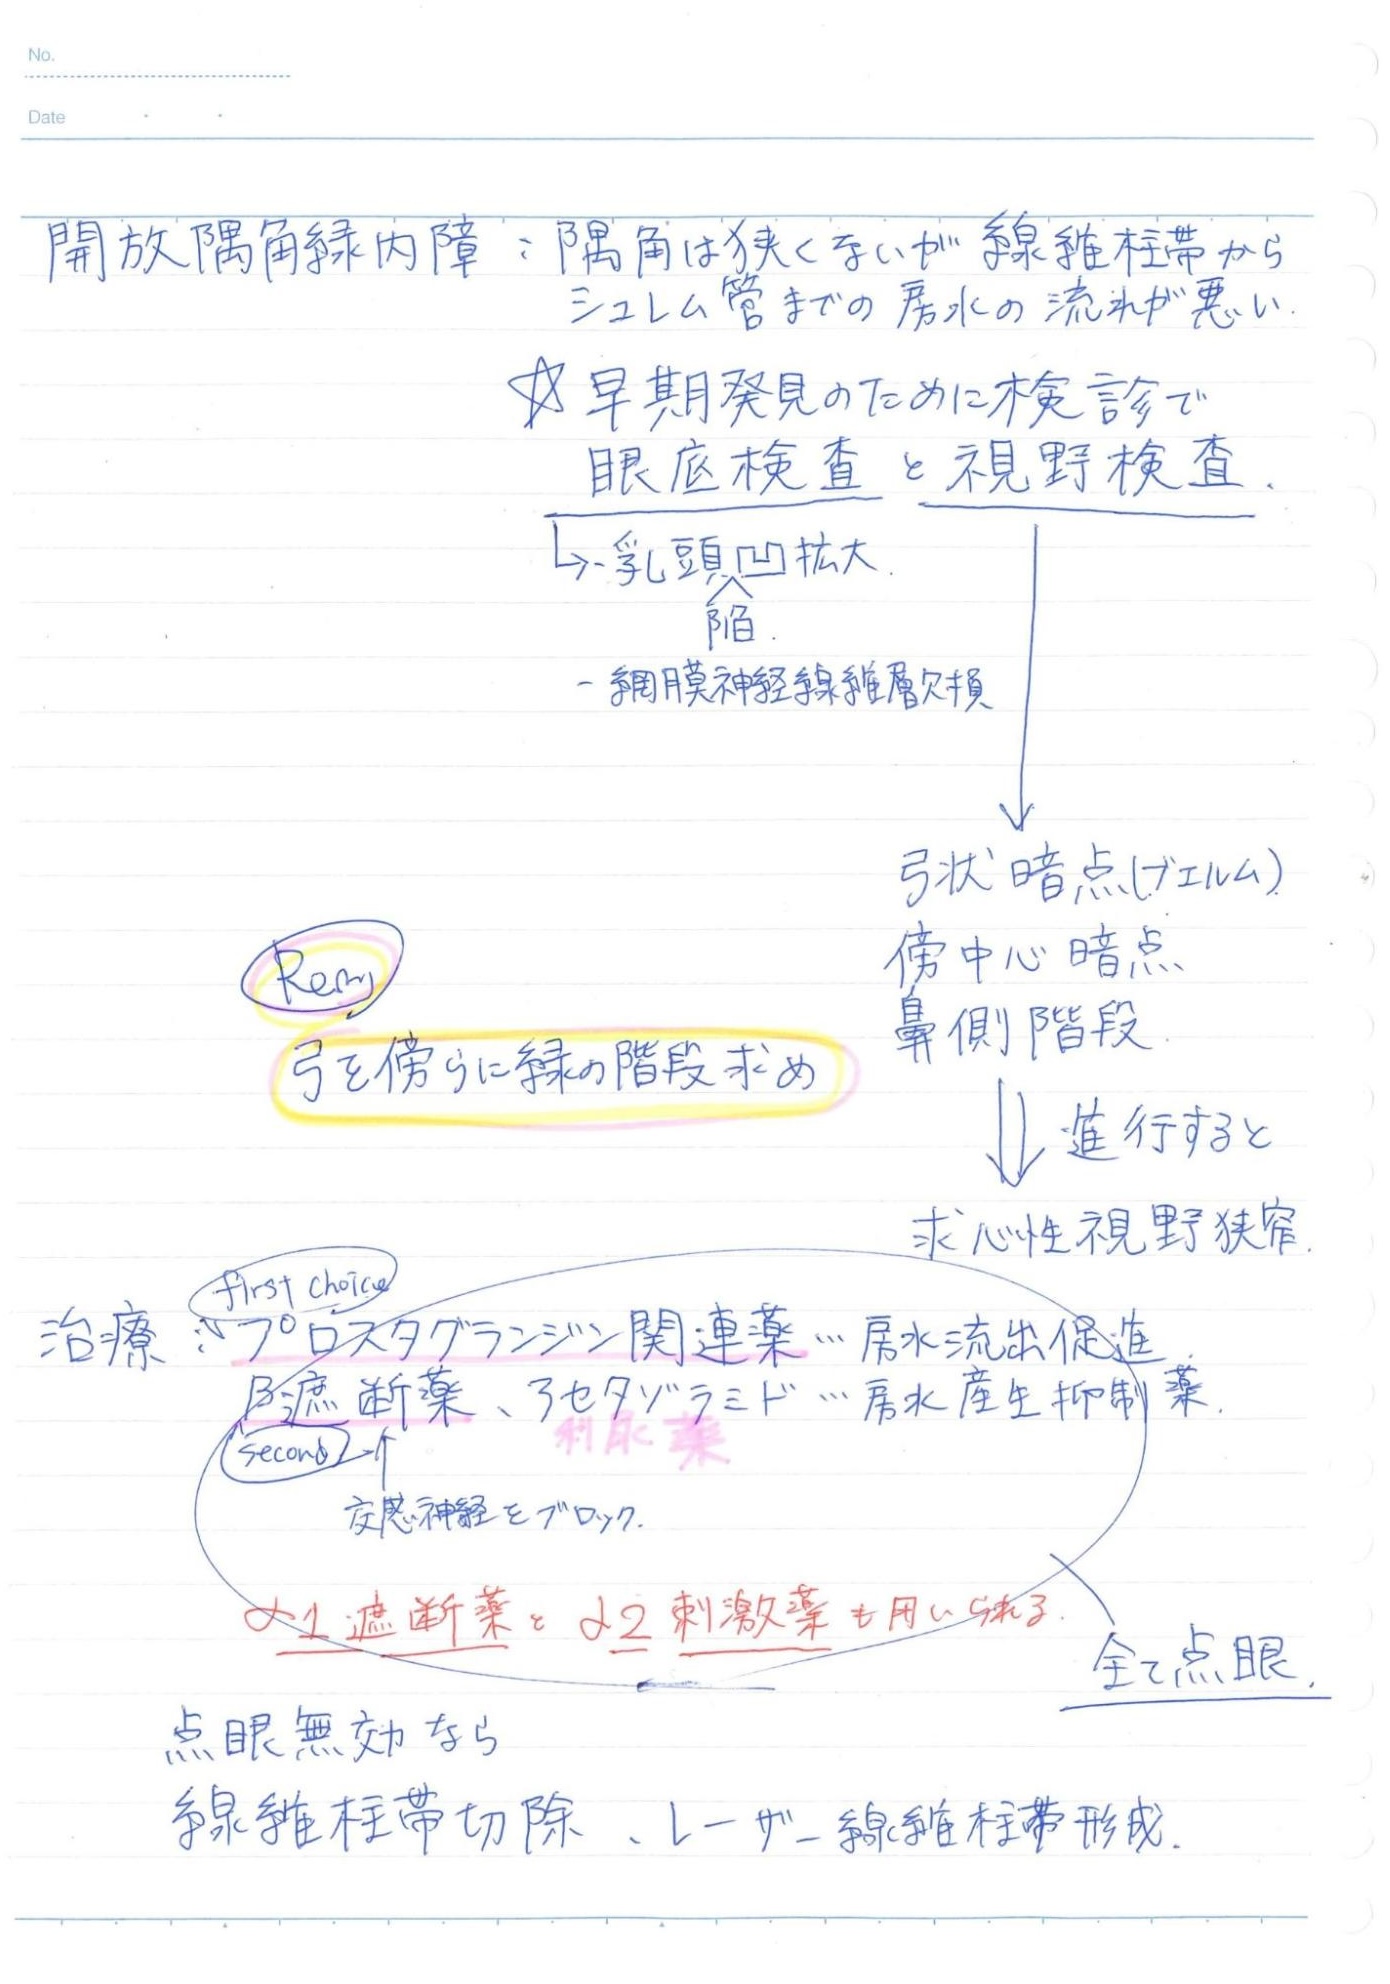 No.
Date
開放隅角緑内障：隅角は狭くないが線維柱帯から
シュレム管までの房水の流れが悪い.
☆早期発見のために検診で
眼底検査と視野検査.
・乳頭凹拡大.
陥.
- 網膜神経線維層欠損
弓状暗点(ブエルム)
傍中心暗点
鼻側階段
Rem
弓を傍らに緑の階段求め
進行すると
求心性視野狭窄.
first choice
治療：プロスタグランジン関連薬…房水流出促進.
β遮断薬、アセタゾラミド…房水産生抑制薬.
利尿薬
second
交感神経をブロック.
α1遮断薬とα2刺激薬も用いられる.
全て点眼.
点眼無効なら
線維柱帯切除、レーザー線維柱帯形成.